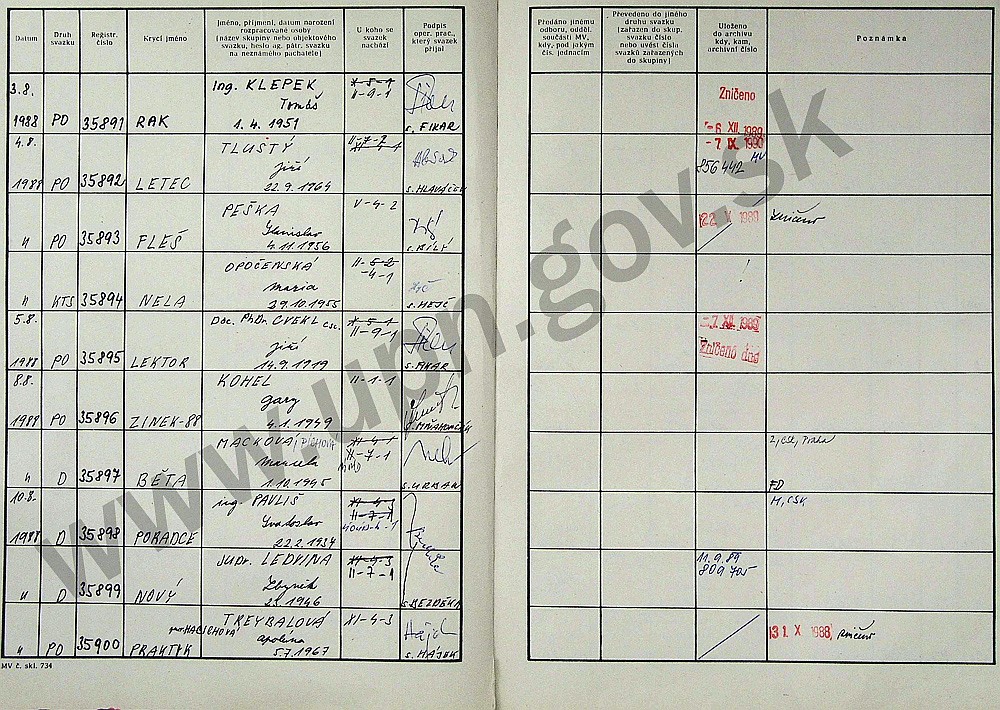 Datum
Druh svazku
Registr. číslo
Krycí jméno
Jméno, příjmení, datum narození
rozpracované osoby
(název skupiny nebo objektového
svazku, heslo ag. pátr. svazku
na neznámého pachatele)
U koho se
svazek
nachází
Podpis
oper. prac.,
který svazek
přijal
Předáno jinému
odboru, odděl.
součásti MV,
kdy, pod jakým
čís. jednacím
Převedeno do jiného
druhu svazku
(zařazen do skup.
svazku číslo
nebo uvést čísla
svazků zařazených
do skupiny)
Uloženo
do archivu
kdy, kam,
archivní číslo
Poznámka
3.8. Ing. KLEPEK X-5-1
Tomáš II-9-1 Zničeno
1988 PO 35891 RAK 1. 4. 1951 s. FIKAR -6 XII. 1989
4.8. TLUSTÝ II-7-2 -7 IX. 1990
jiří 856442 MV
1988 PO 35892 LETEC 22. 9. 1964 s. HLAVÁČEK
PEŠKA V-4-2
Stanislav 22. X 1989 zničeno
" PO 35893 FLEŠ 4. 11. 1956 s. BÍLÝ
OPOČENSKÁ II-5-2
maria -4-1
" KTS 35894 NELA 29. 10. 1955 s. HEJČ
5.8. Doc. PhDr. CVEKL CSc. X-5-1
jiří II-9-1 -7. XII. 1989
1988 PO 35895 LEKTOR 14. 9. 1919 s. FIKAR Zničeno dne
8.8. KOHEL II-1-1
gary
1988 PO 35896 ZINEK-88 4. 1. 1949
MACKOVÁ, PÍCHOVÁ XI-4-1
Marcela II-7-1
" D 35897 BĚTA 1. 10. 1945 MMO s. URBAN FD
10.8. ing. PAVLIŠ XI-4-3 M, CSK
Svatoslav II-7-1
1988 D 35898 PORADCE 22. 2. 1934
JUDr. LEDVINA XI-4-3 11. 9. 89
Zbyněk II-7-1 809705
" D 35899 NOVÝ 1946 s. BEZDĚKA
TREYBALOVÁ XI-4-3
apolina 31. X 1988 zničeno
" PO 35900 PRAKTIK 5. 7. 1967 s. HÁJEK
MV č. skl. 734
www.upn.gov.sk